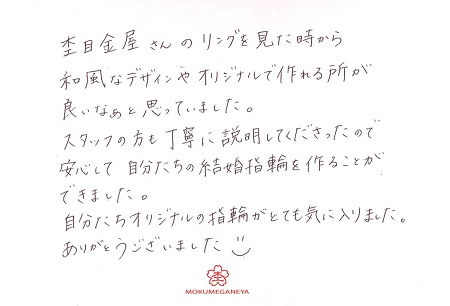 杢目金屋さんのリングを見た時から
和風なデザインやオリジナルで作れる所が
良いなぁと思っていました。
スタッフの方も丁寧に説明してくださったので
安心して自分たちの結婚指輪を作ることが
できました。
自分たちオリジナルの指輪がとても気に入りました。
ありがとうございました
杢
MOKUMEGANEYA